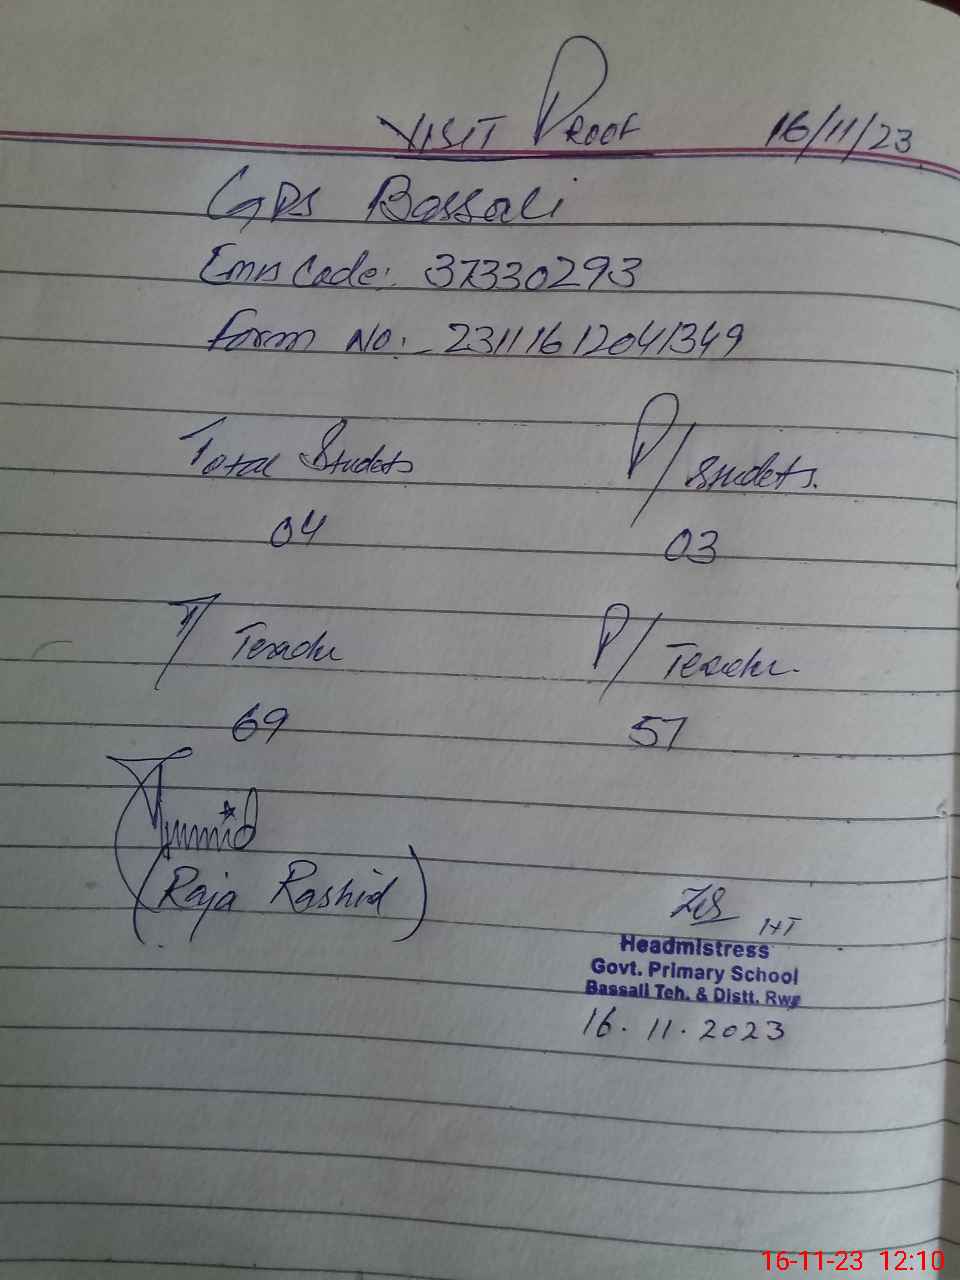 VISIT PROOF 16/11/23
GPS Bassali
Emis Code: 37330293
Form No:- 23111612041349
Total Studets P/Studets.
04 03
T/ Teache P/ Teache.
69 57
(Raja Rashid)
HT
Headmistress
Govt. Primary School
Bassali Teh. & Distt. Rwp
16.11.2023
16-11-23 12:10